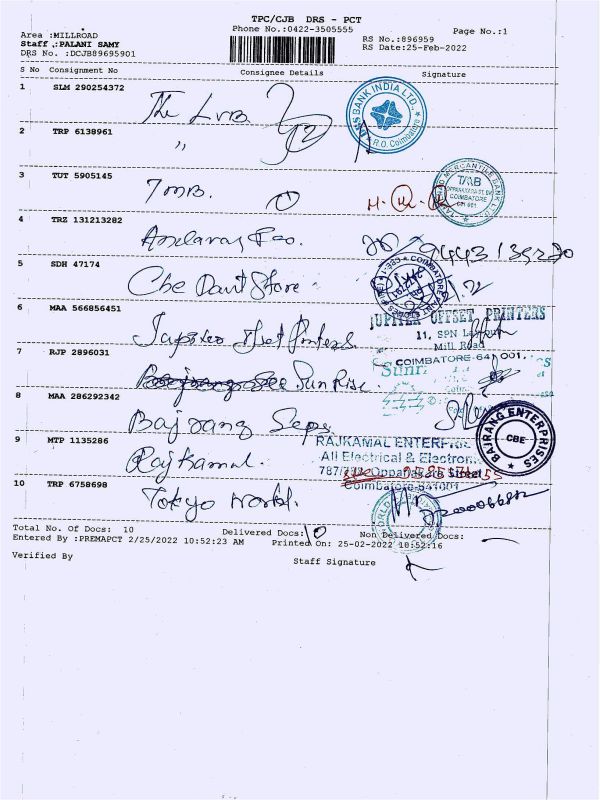 TPC/CJB DRS - PCT
Phone No.:0422-3505555
Page No.:1
Area :MILLROAD
RS No.:896959
Staff :PALANI SAMY
RS Date:25-Feb-2022
DRS No. :DCJB89695901
S No Consignment No Consignee Details Signature
1 SLM 290254372
The LVB
BANK INDIA LTD.,
R.O. Coimbatore
2 TRP 6138961
"
3 TUT 5905145
TMB.
MERCANTILE BANK LTD
TMB
COIMBATORE
641 001
4 TRZ 131213282
5 SDH 47174
Cbe Paint Store
COIMBATORE
6 MAA 566856451
JUPITER OFFSET PRINTERS
11, SPN
Mill Road
COIMBATORE-641 001.
7 RJP 2896031
Sun Rise.
8 MAA 286292342
Bajrang
BAJRANG ENTERPRISES
CBE
9 MTP 1135286
Raj Kamal.
RAJKAMAL ENTERPRISE
All Electrical & Electron
Street
Coimbatore-641001
10 TRP 6758698
Tokyo World.
Total No. Of Docs: 10 Delivered Docs: 10 Non Delivered Docs: -
Entered By :PREMAPCT 2/25/2022 10:52:23 AM Printed On: 25-02-2022 10:52:16
Verified By Staff Signature